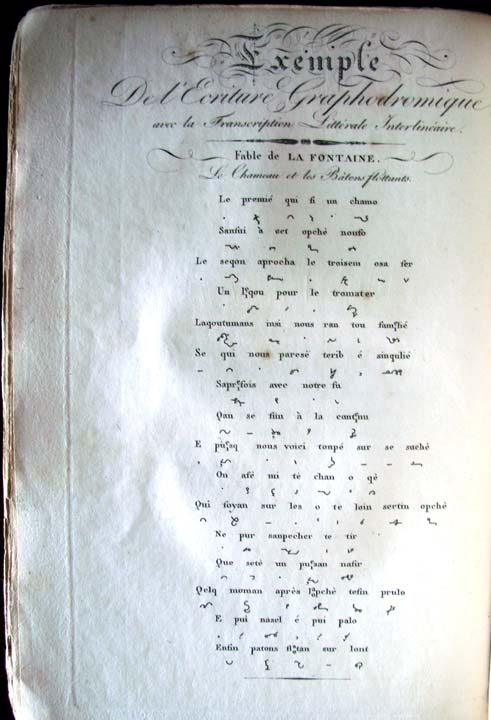 Exemple
De l'Ecriture Graphodromique
avec la Transcription Littérale Interlinéaire.
Fable de LA FONTAINE.
Le Chameau et les Bâtons flottants.
Le premié qui fi un chamo
Sanfui à cet opché noufo
Le seqon aprocha le troisem osa fer
Un pour le tromater
Laqoutumans insi nous ran tou
Se qui nous paresé terib é singulié
avec notre fu
Qan se fiin à la
E nous voici tonpé sur se suché
On afé mi té chan o qé
Qui foyan sur les o te loin sertin opché
Ne pur sanpecher te tir
Que seté un nafir
Qelq moman après tefin prulo
E pui nasel é pui palo
Enfin patons sur lont